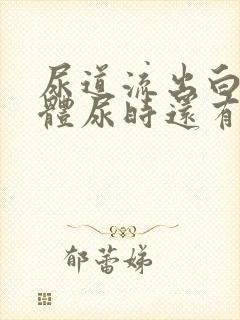 尿道流出白
體尿時還有
郁蕾娣